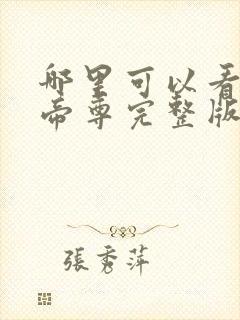 哪里可以看
帝尊完整版
張秀萍